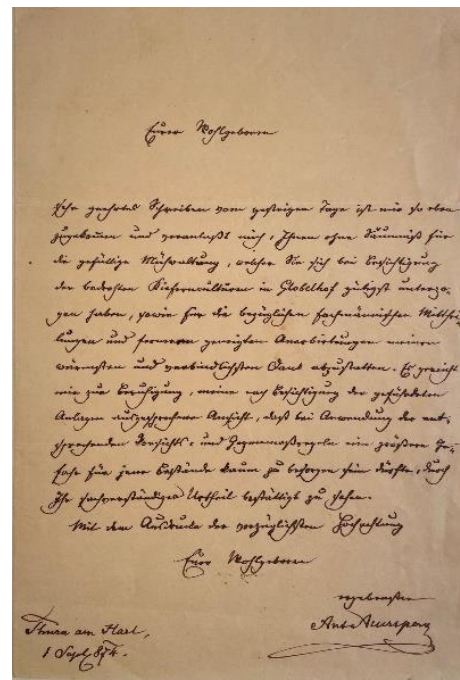 Euer Wohlgeboren
Sehr geehrtes Schreiben vom gestrigen Tage ist mir so eben
zugekommen und veranlaßt mich, Ihnen ohne Säumniß für
die gefällige Mühwaltung, welcher Sie sich bei Besichtigung
der bedrohten Kiefernculturen in Globelhof gütigst unterzo-
gen haben, sowie für die bezüglichen fachmännischen Mitthei-
lungen und ferneren geneigten Anerbietungen meinen
wärmsten und verbindlichsten Dank abzustatten. Es gereicht
mir zur Beruhigung, meine nach Besichtigung der gefährdeten
Anlagen ausgesprochene Ansicht, daß bei Anwendung der ent-
sprechenden Vorsichts- und Gegenmaßregeln eine größere Ge-
fahr für jene Bestände kaum zu besorgen sein dürfte, durch
Ihr sachverständiges Urtheil bestätigt zu sehen.
Mit dem Ausdrucke der vorzüglichsten Hochachtung
Euer Wohlgeboren
ergebenster
Ant. Auersperg
Thurn am Hart,
1 Sept. 874.